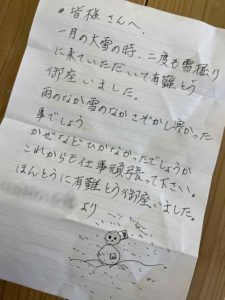 皆様さんへ、
一月の大雪の時、二度も雪掘り
に来ていただいて有難とう
御座いました。
雨のなか雪のなかさぞかし寒かった
事でしょう
かぜなどひかなかったでしょうか
これからも仕事頑張って下さい。
ほんとうに有難とう御座いました。
より